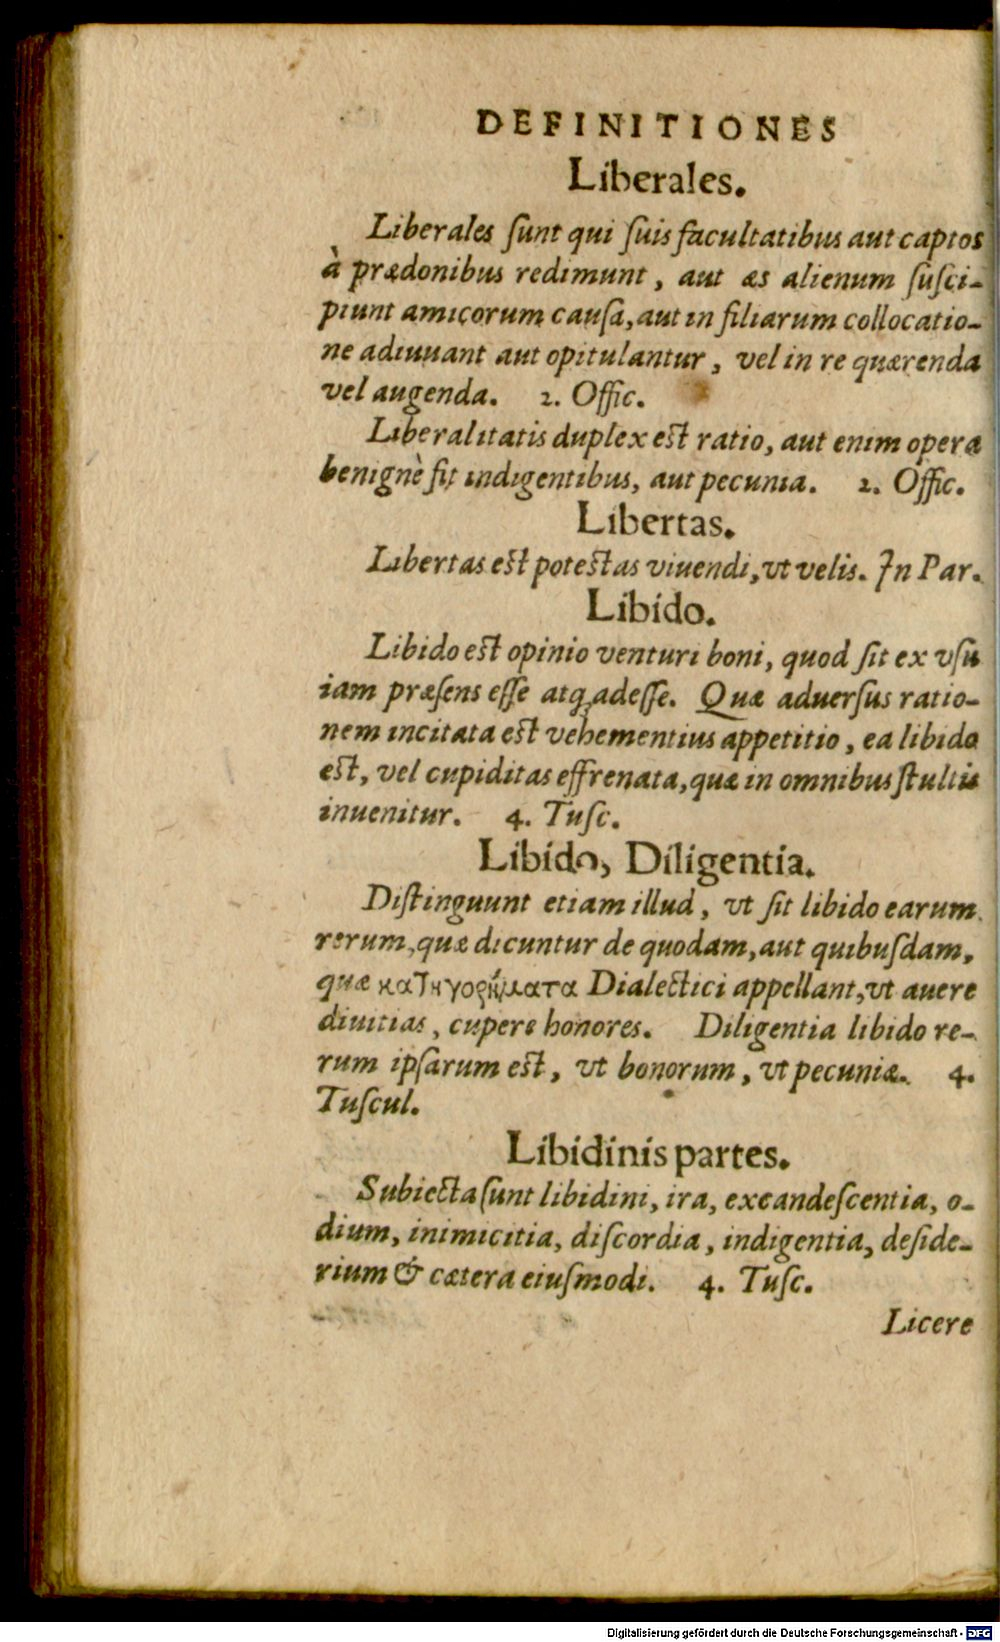 DEFINITIONES
Liberales.
Liberales ſunt qui ſuis facultatibus aut captos
à prædonibus redimunt, aut æs alienum ſuſci-
piunt amicorum cauſa, aut in filiarum collocatio-
ne adiuuant aut opitulantur, vel in re quærenda
vel augenda. 2. Offic.
Liberalitatis duplex est ratio, aut enim opera
benignè fit indigentibus, aut pecunia. 2. Offic.
Libertas.
Libertas est potestas viuendi, vt velis. In Par.
Libido.
Libido est opinio venturi boni, quod ſit ex vſu
iam præſens eſſe atq; adeſſe. Quæ aduerſus ratio-
nem incitata est vehementius appetitio, ea libido
est, vel cupiditas effrenata, quæ in omnibus ſtultis
inuenitur. 4. Tuſc.
Libido, Diligentia.
Diſtinguunt etiam illud, vt ſit libido earum
rerum, quæ dicuntur de quodam, aut quibuſdam,
quæ κατηγορήματα Dialectici appellant, vt auere
diuitias, cupere honores. Diligentia libido re-
rum ipſarum est, vt bonorum, vt pecuniæ. 4.
Tuſcul.
Libidinis partes.
Subiecta ſunt libidini, ira, excandeſcentia, o-
dium, inimicitia, diſcordia, indigentia, deſide-
rium & cætera eiuſmodi. 4. Tuſc.
Licere
Digitalisierung gefördert durch die Deutsche Forschungsgemeinschaft - DFG